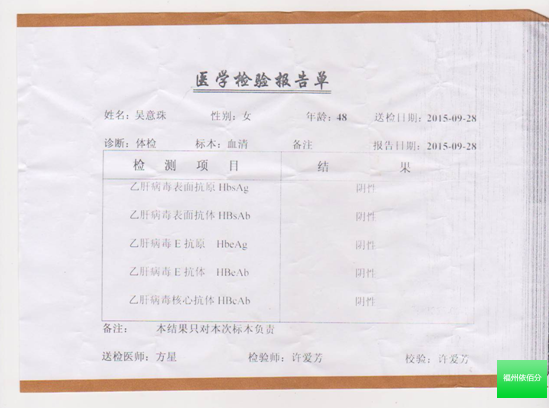 医学检验报告单
姓名：吴意珠 性别：女 年龄：48 送检日期：2015-09-28
诊断：体检 标本：血清 备注 报告日期：2015-09-28
检测项目 结果
乙肝病毒表面抗原 HbsAg 阴性
乙肝病毒表面抗体 HBsAb 阴性
乙肝病毒 E 抗原 HbeAg 阴性
乙肝病毒 E 抗体 HBeAb 阴性
乙肝病毒核心抗体 HBcAb 阴性
备注： 本结果只对本次标本负责
送检医师：方星 检验师：许爱芳 校验：许爱芳
福州依佰分